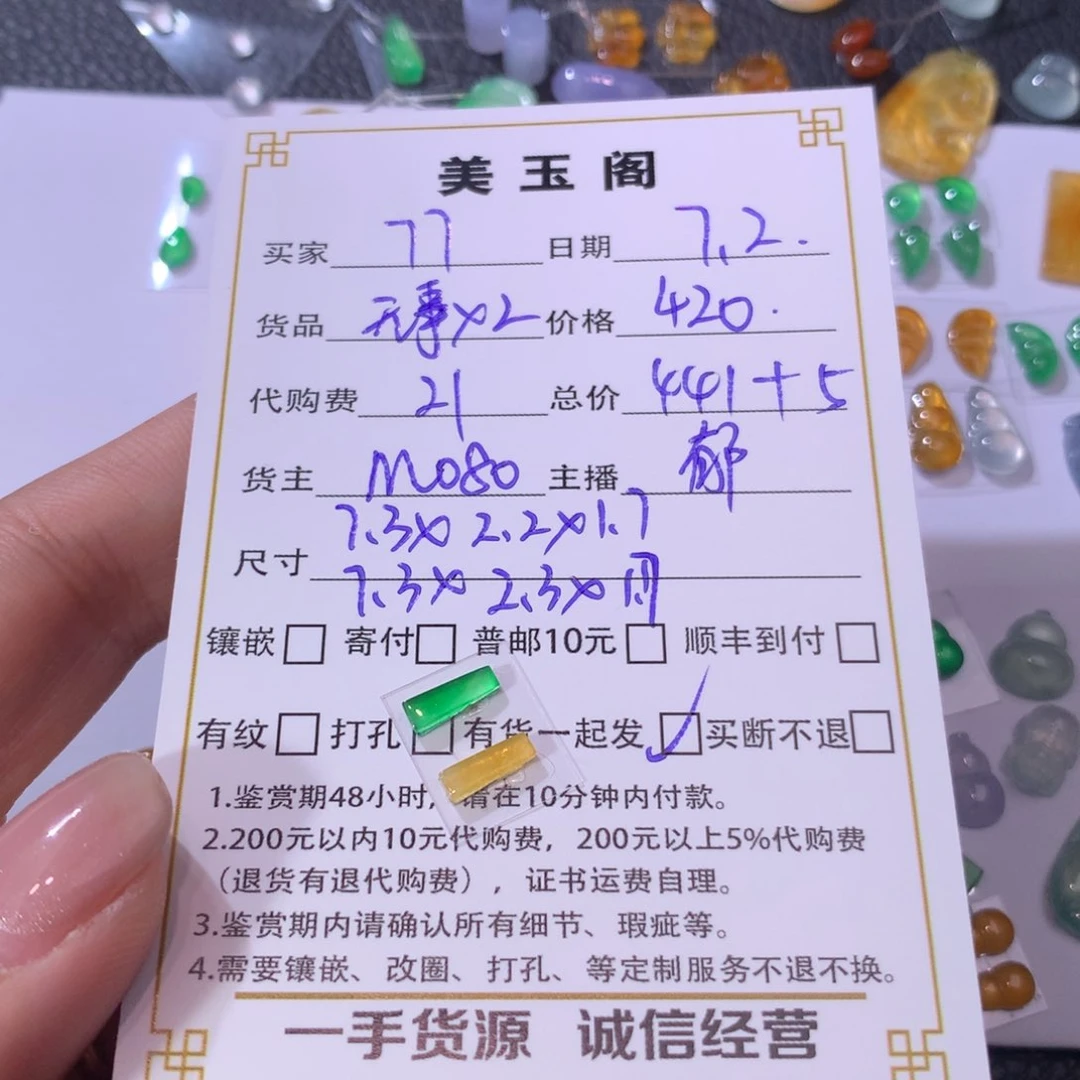 美玉阁
买家 77 日期 7.2.
货品 无事x2 价格 420.
代购费 21 总价 441+5
货主 M080 主播 郁
7.3x 2.2x1.7
尺寸
7.3x 2.3x1.7
镶嵌□ 寄付□ 普邮10元□ 顺丰到付□
有纹□ 打孔□ 有货一起发☑ 买断不退□
1.鉴赏期48小时，请在10分钟内付款。
2.200元以内10元代购费，200元以上5%代购费
（退货有退代购费），证书运费自理。
3.鉴赏期内请确认所有细节、瑕疵等。
4.需要镶嵌、改圈、打孔、等定制服务不退不换。
一手货源 诚信经营